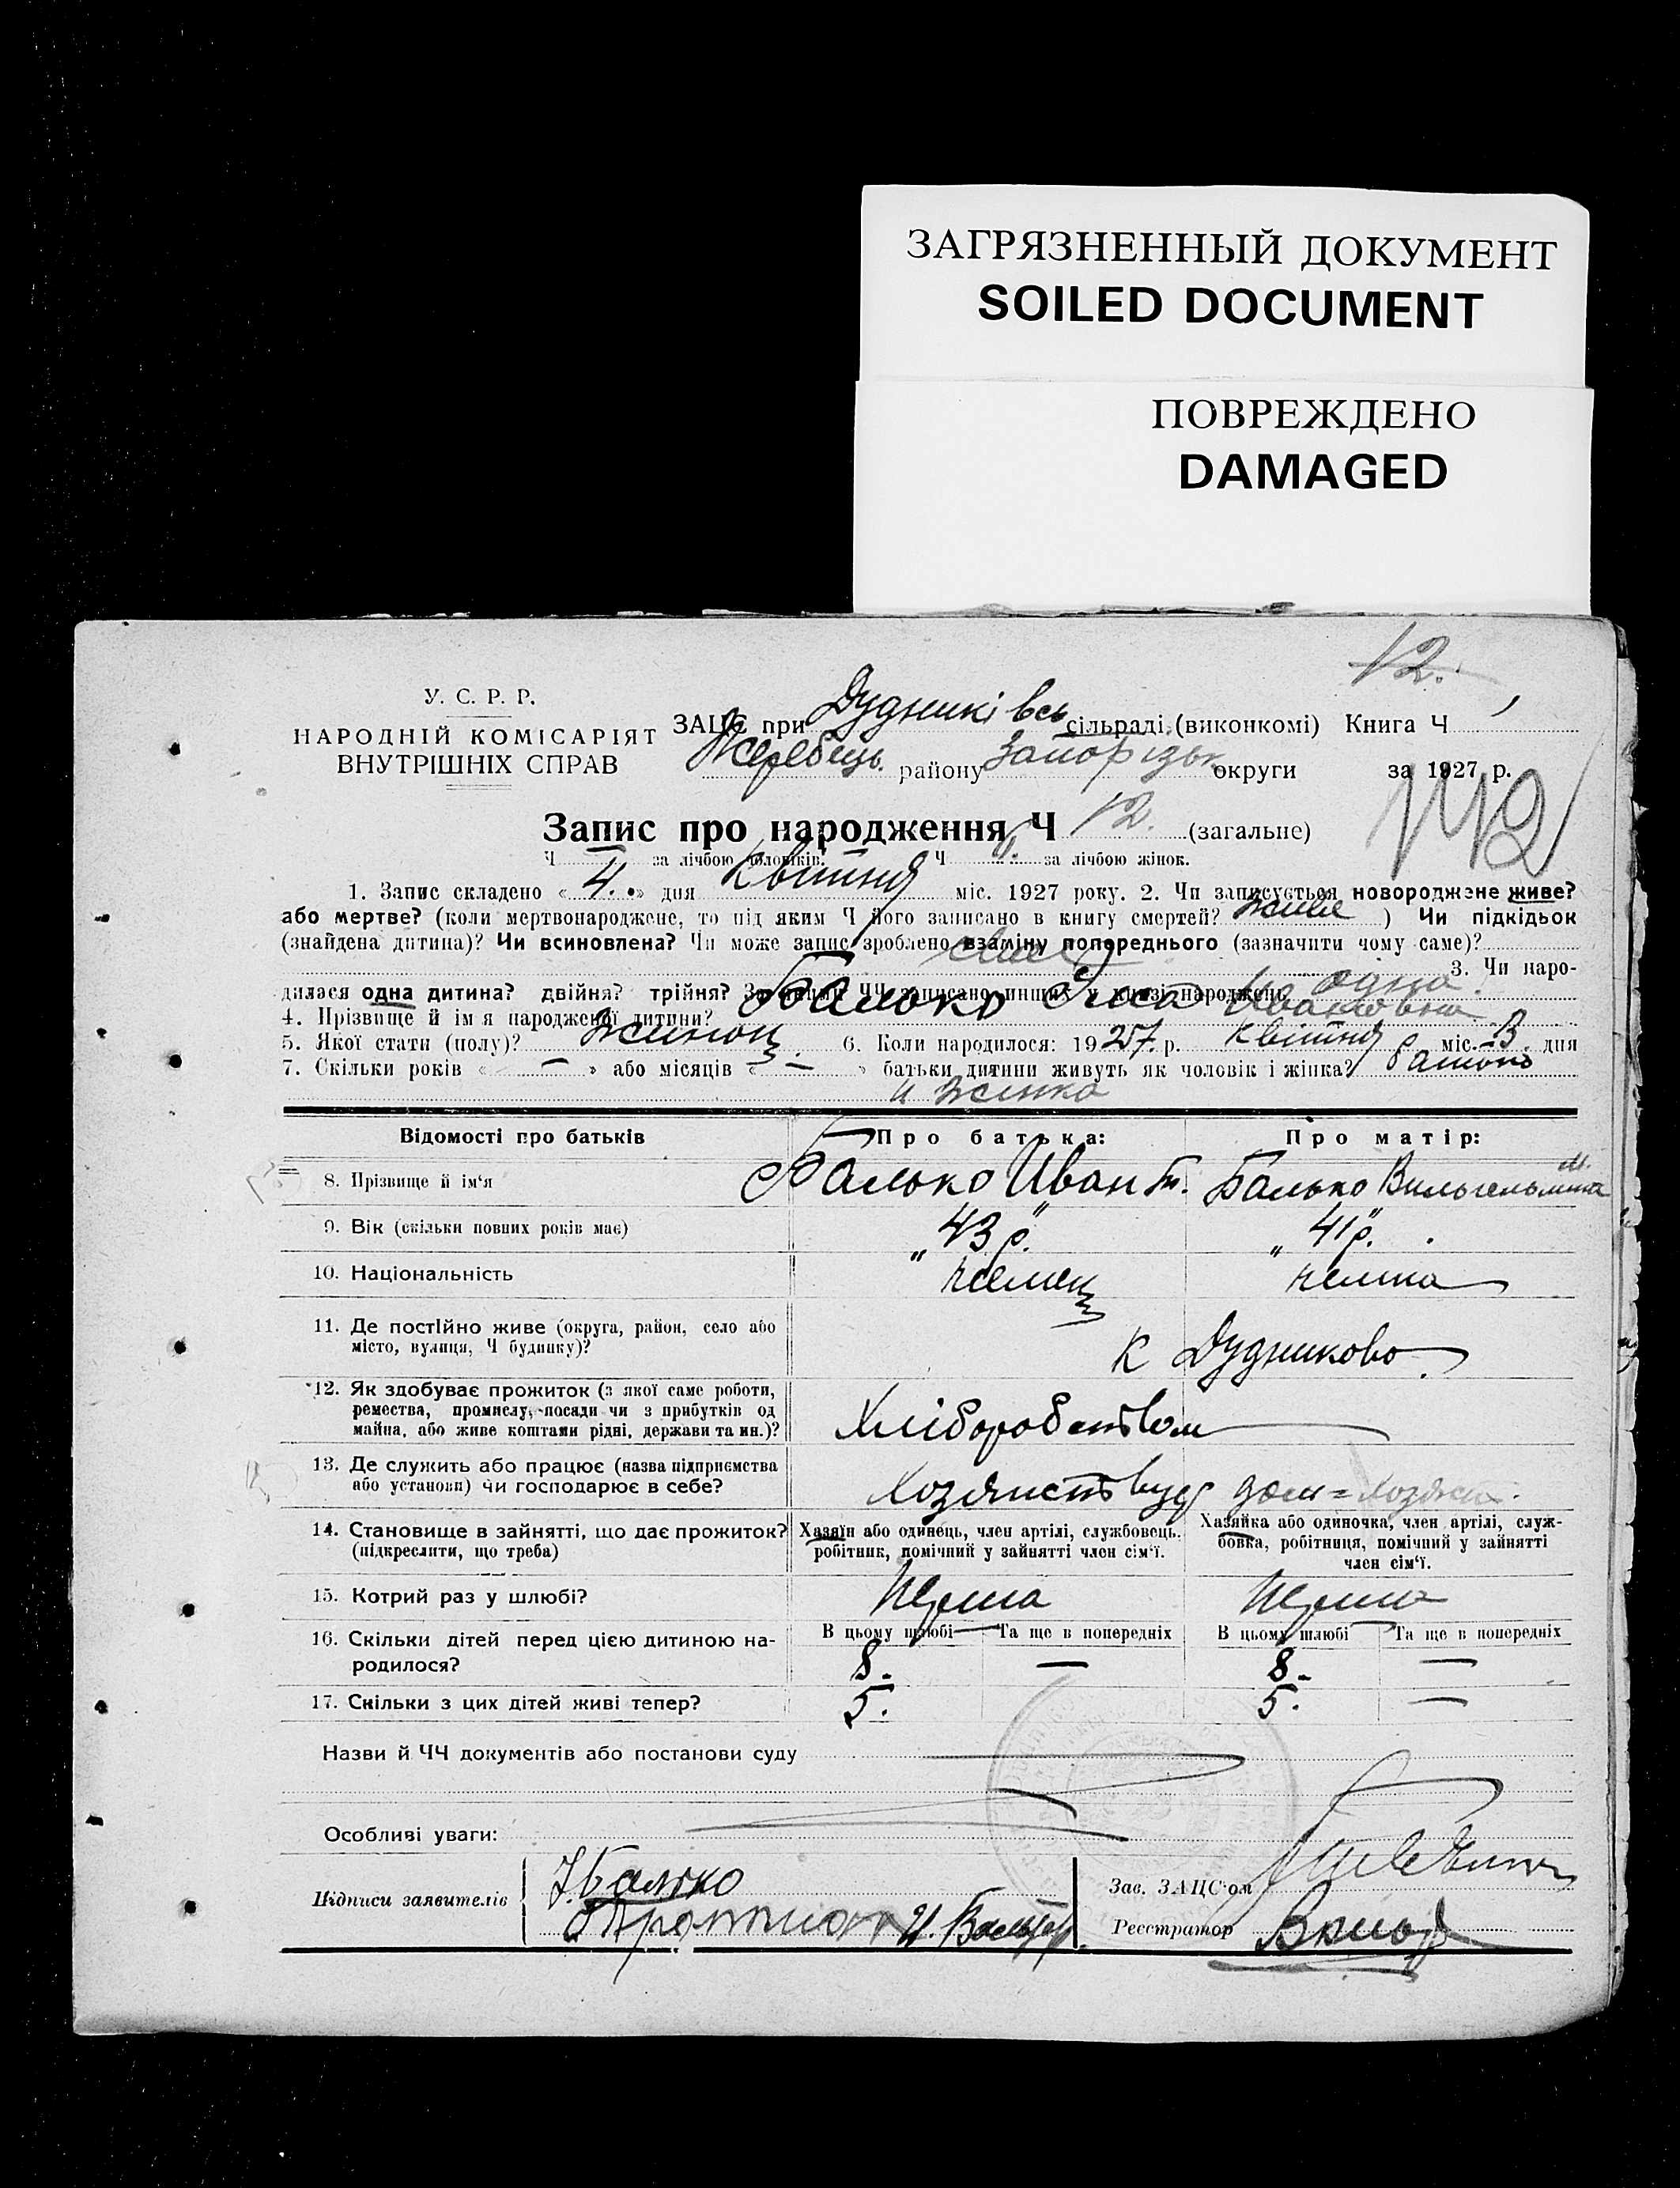 ЗАГРЯЗНЕННЫЙ ДОКУМЕНТ
SOILED DOCUMENT
ПОВРЕЖДЕНО
DAMAGED
12.
У. С. Р. Р.
НАРОДНІЙ КОМІСАРІЯТ
ВНУТРІШНІХ СПРАВ
ЗАЦС при Дудниківсь сільраді (виконкомі) Книга Ч
Жеребець. району Запорізьк округи за 1927 р.
Запис про народження Ч 12. (загальне)
Ч за лічбою чоловіків. Ч за лічбою жінок.
1. Запис складено « 4. » дня Квітня міс. 1927 року. 2. Чи записується новороджене живе?
або мертве? (коли мертвонароджене, то під яким Ч його записано в книгу смертей? живе ) Чи підкідьок
(знайдена дитина)? Чи всиновлена? Чи може запис зроблено взаміну попереднього (зазначити чому саме)?
3. Чи наро-
дилася одна дитина? двійня? трійня? За якими ЧЧ записано инших у книзі народжень одна.
4. Прізвище й ім'я народженої дитини? Балько Ивановна
5. Якої стати (полу)? Жиноц. 6. Коли народилося: 1927. р. Квітня міс. 3 дня
7. Скільки років « — » або місяців « — » батьки дитини живуть як чоловік і жінка?
и жинка
Відомості про батьків Про батька: Про матір:
8. Прізвище й ім'я Балько Иван Балько Вильгельмина
9. Вік (скільки повних років має) „43 р." „41 р."
10. Національність немец немка
11. Де постійно живе (округа, район, село або
місто, вулиця, Ч будинку)? К Дудниково
12. Як здобуває прожиток (з якої саме роботи,
ремества, промислу, посади чи з прибутків од
майна, або живе коштами рідні, держави та ин.)? Хліборобством
13. Де служить або працює (назва підприємства
або установи) чи господарює в себе? дом=хозяйст.
14. Становище в зайнятті, що дає прожиток?
(підкреслити, що треба)
Хазяїн або одинець, член артілі, службовець,
робітник, помічний у зайнятті член сім'ї.
Хазяйка або одиночка, член артілі, служ-
бовка, робітниця, помічний у зайнятті
член сім'ї.
15. Котрий раз у шлюбі? Перша Перша
16. Скільки дітей перед цією дитиною на-
родилося?
В цьому шлюбі Та ще в попередніх В цьому шлюбі Та ще в попередніх
8. — 8. —
17. Скільки з цих дітей живі тепер? 5. 5. —
Назви й ЧЧ документів або постанови суду
Особливі уваги:
Підписи заявителів Балько
Зав. ЗАЦС'ом
Реєстратор